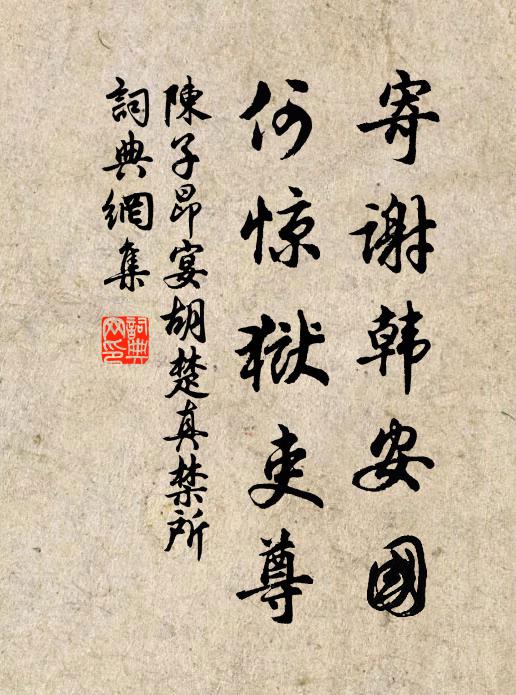 寄谢韩安國
何惊獄吏尊
陳子昂宴胡楚真禁所
詞典網集
詞典
网印